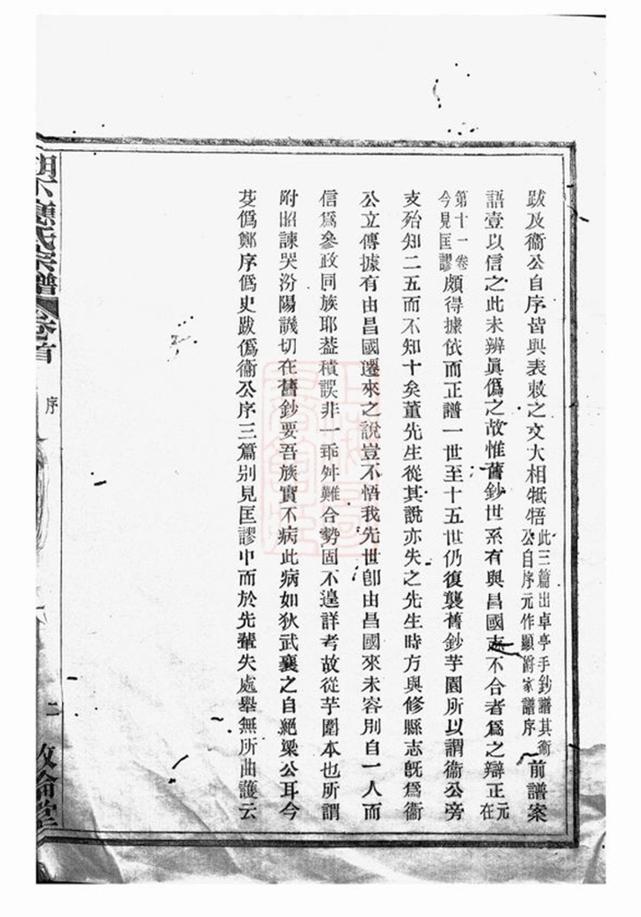 跋及衞公自序皆與表敕之文大相牴牾此三篇出卓亭手鈔譜其衞公自序元作顯爵家譜序前譜案
語壹以信之此未辨眞僞之故惟舊鈔世系有與昌國志不合者爲之辯正元在
第十一卷今見匡謬頗得據依而正譜一世至十五世仍復襲舊鈔芋園所以謂衞公旁
支殆知二五而不知十矣董先生從其說亦失之先生時方與修縣志旣爲衞
公立傳據有由昌國遷來之說豈不悟我先世卽由昌國來未容別自一人而
信爲參政同族耶葢積誤非一乖舛難合勢固不遑詳考故從芋園本也所謂
附昭諫哭汾陽譏切在舊鈔要吾族實不病此病如狄武襄之自絕梁公耳今
芟僞鄭序僞史跋僞衞公序三篇別見匡謬中而於先輩失處舉無所曲護云
氏宗譜 卷首
序
二
敘倫堂